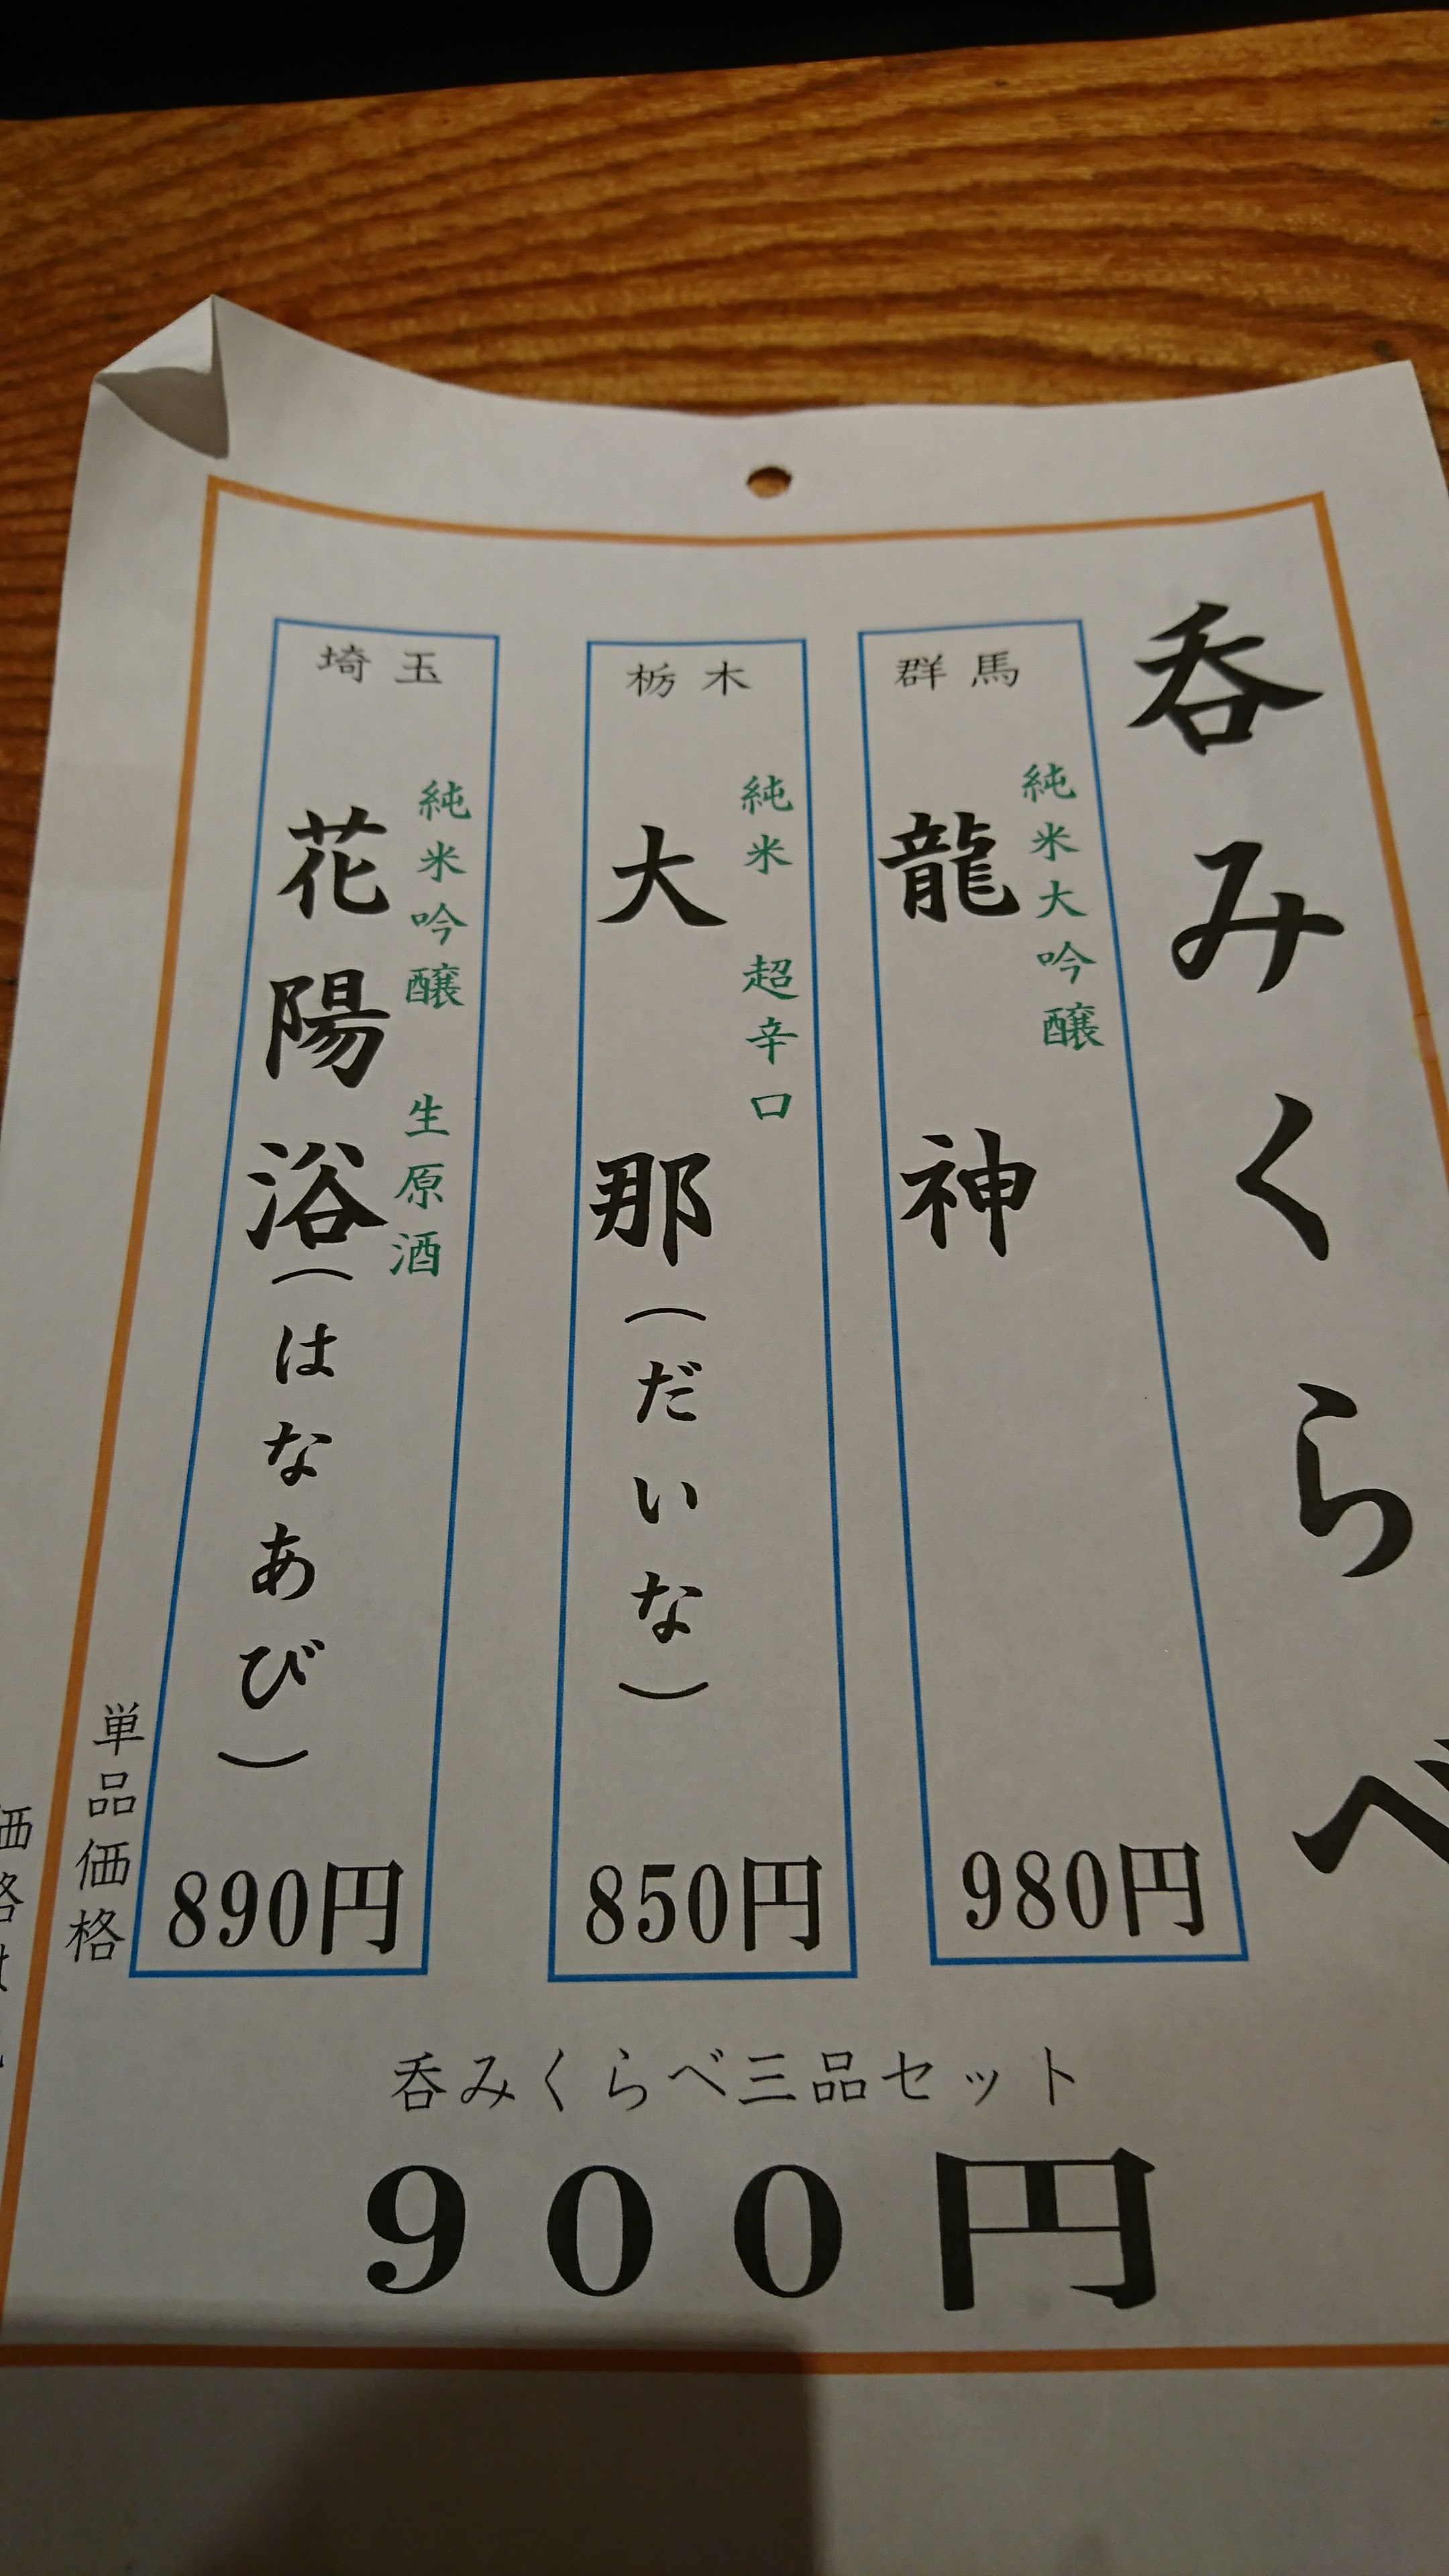 呑みくらべ
群馬
純米大吟醸
龍神
980円
栃木
純米 超辛口
大那(だいな)
850円
埼玉
純米吟醸 生原酒
花陽浴(はなあび)
890円
単品価格
価格は
呑みくらべ三品セット
900円